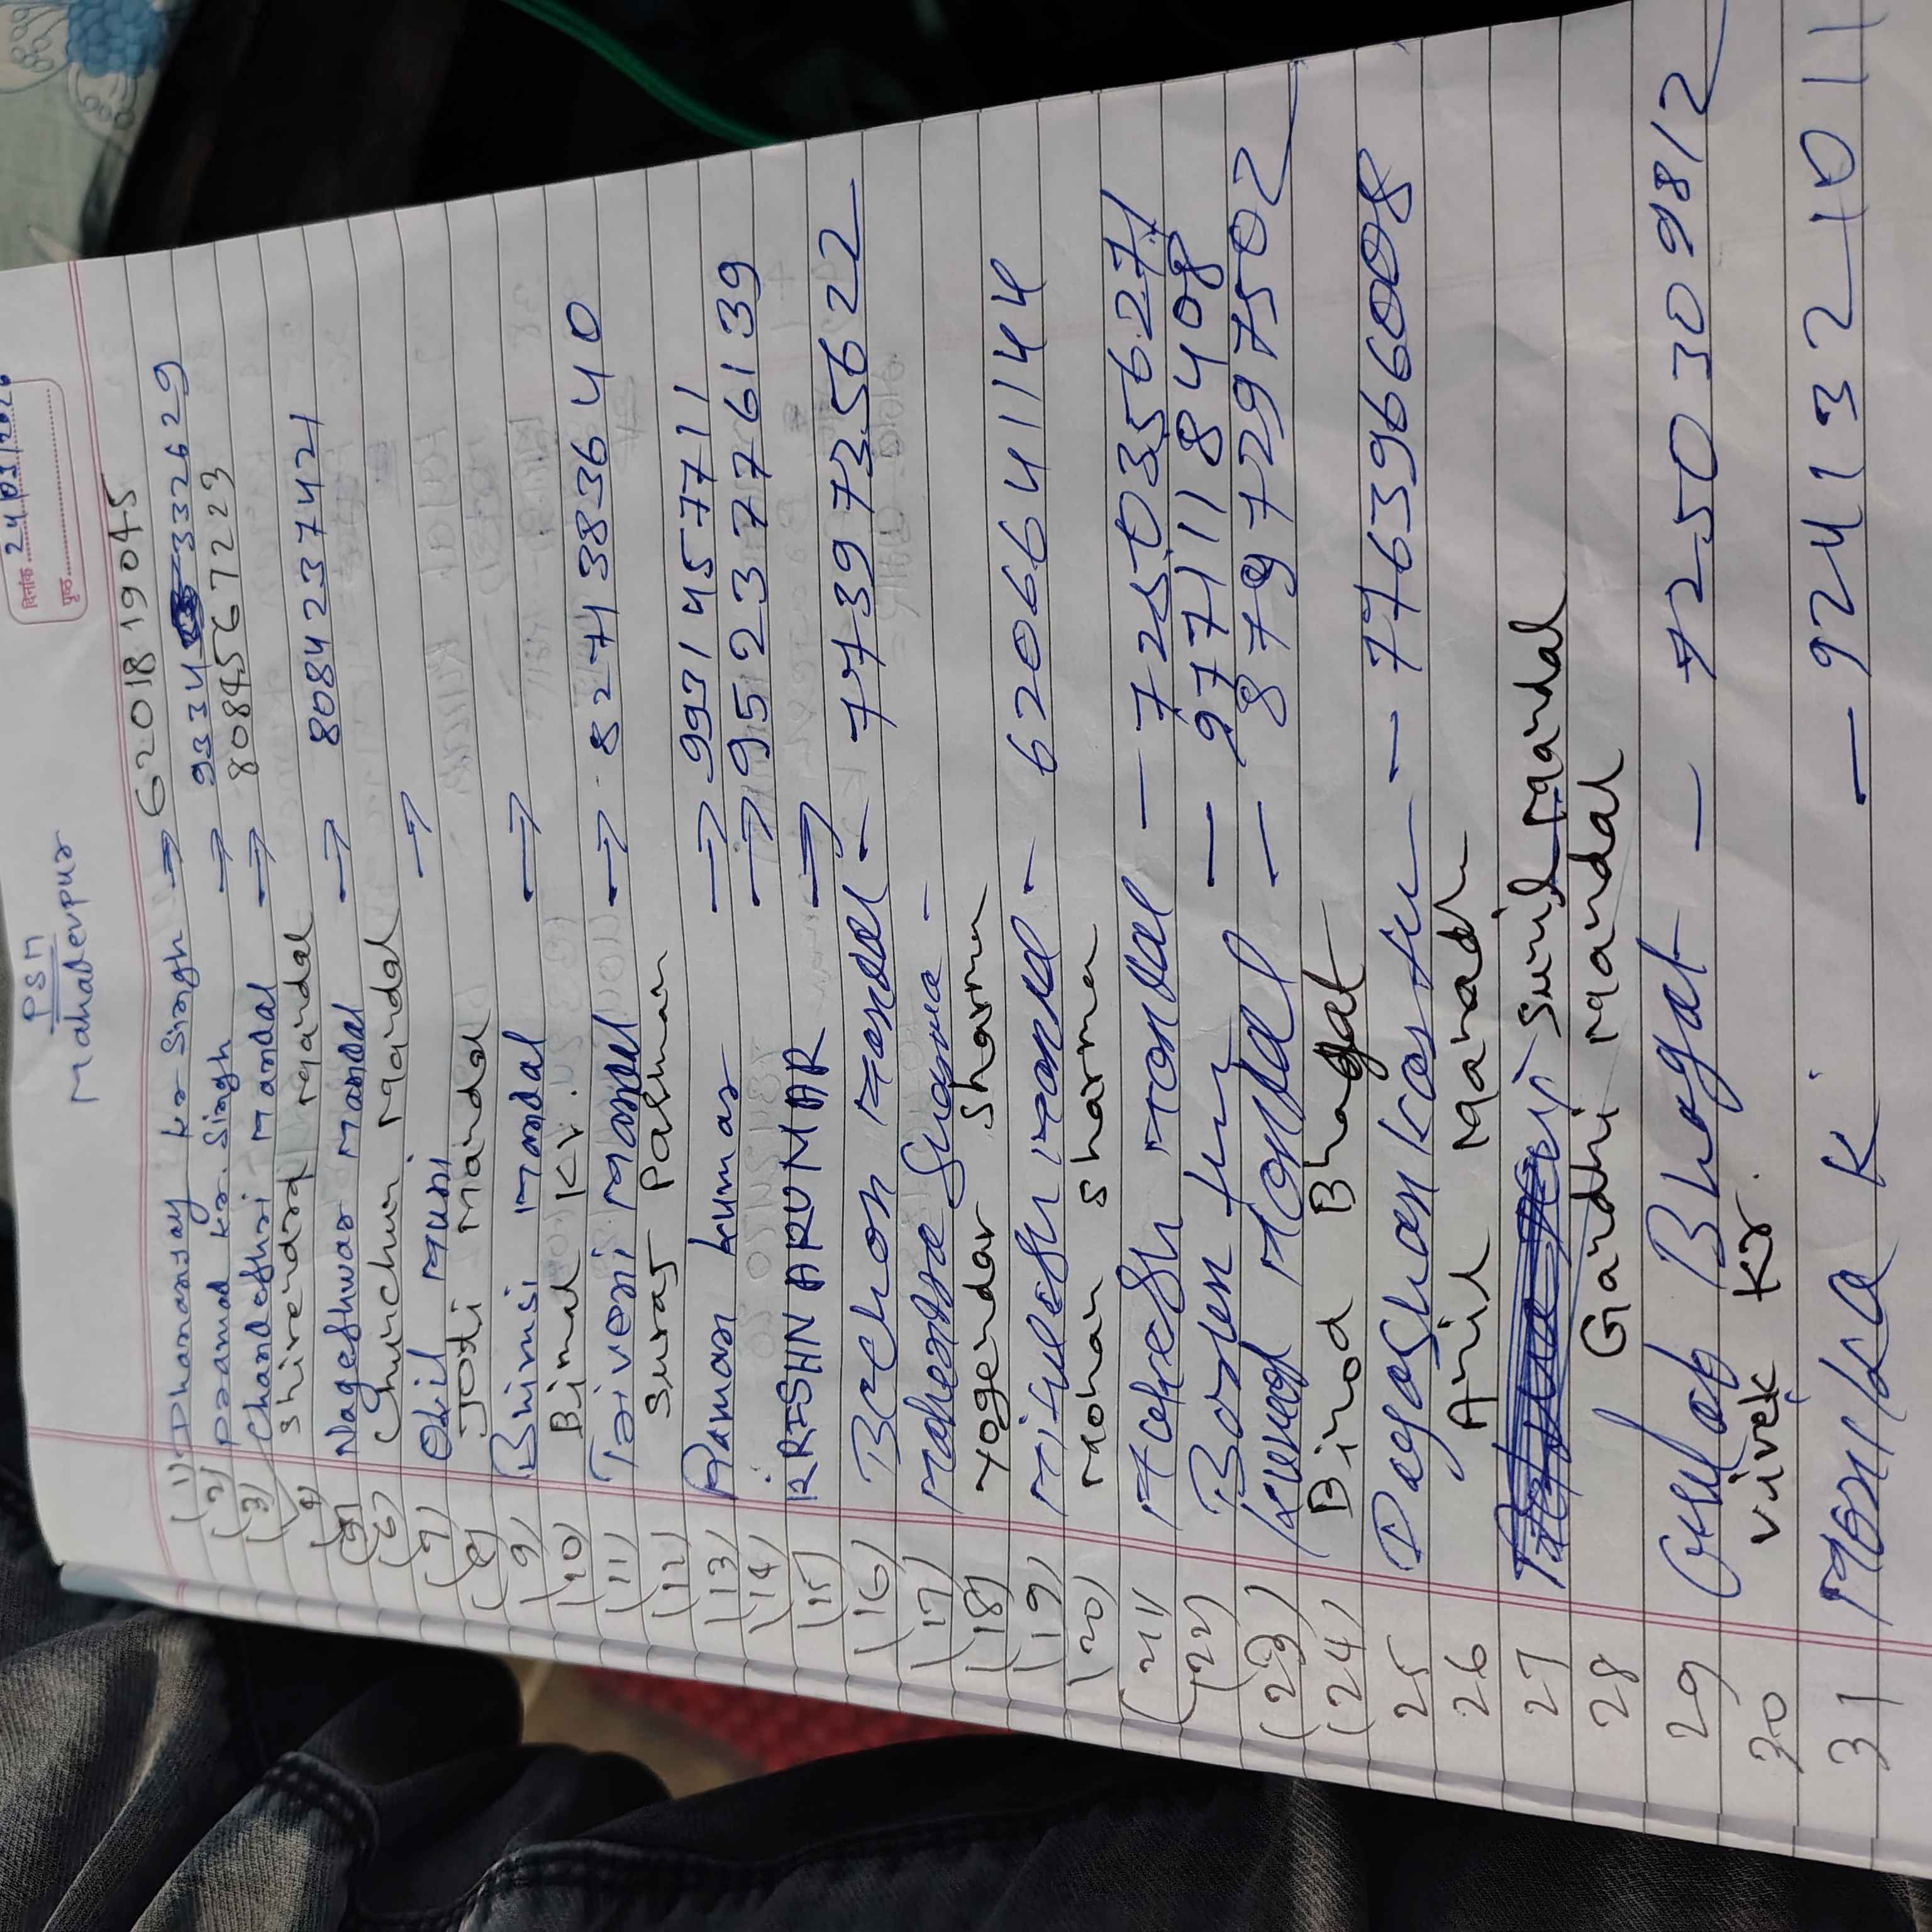 दिनांक 24/03/202
पृष्ठ
PSM
Mahadevpur
(1) Dhananjay kr Singh → 6201819045
(2) Pramod kr. Singh → 9334 332629
(3) Chandeshri Mandal → 8084567223
(4) Shivendra Mandal
(5) Nageshwar Mandal → 8084237421
(6) Chunchun Mandal
(7) Okil Muni →
(8) Jodi Mandal
(9) Bhimsi Mandal →
(10) Bimal Kr.
(11) Triveni Mandal → 8274383640
(12) Suraj Paswan
(13) Raman kumar → 9931457711
(14) → 9523776139
(15) KRISHNA KUMAR →
(16) Bechon Mandal - 7739735622
(17) Mahendra Sharma -
(18) Yogendar Sharma
(19) Mithlesh Mandal - 6206641144
(20) Mohan Sharma
(21) Mahesh Mandal - 7250356271
(22) - 9771118408
(23) Mondal - 8797297502
(24) Binod Bhagat
25 - 7763966008
26 Anil Mandal
27 Sunil Mandal
28 Gandhi Mandal
29 Gulab Bhagat - 7250309812
30 Vivek Kr.
31 K - 9241321011